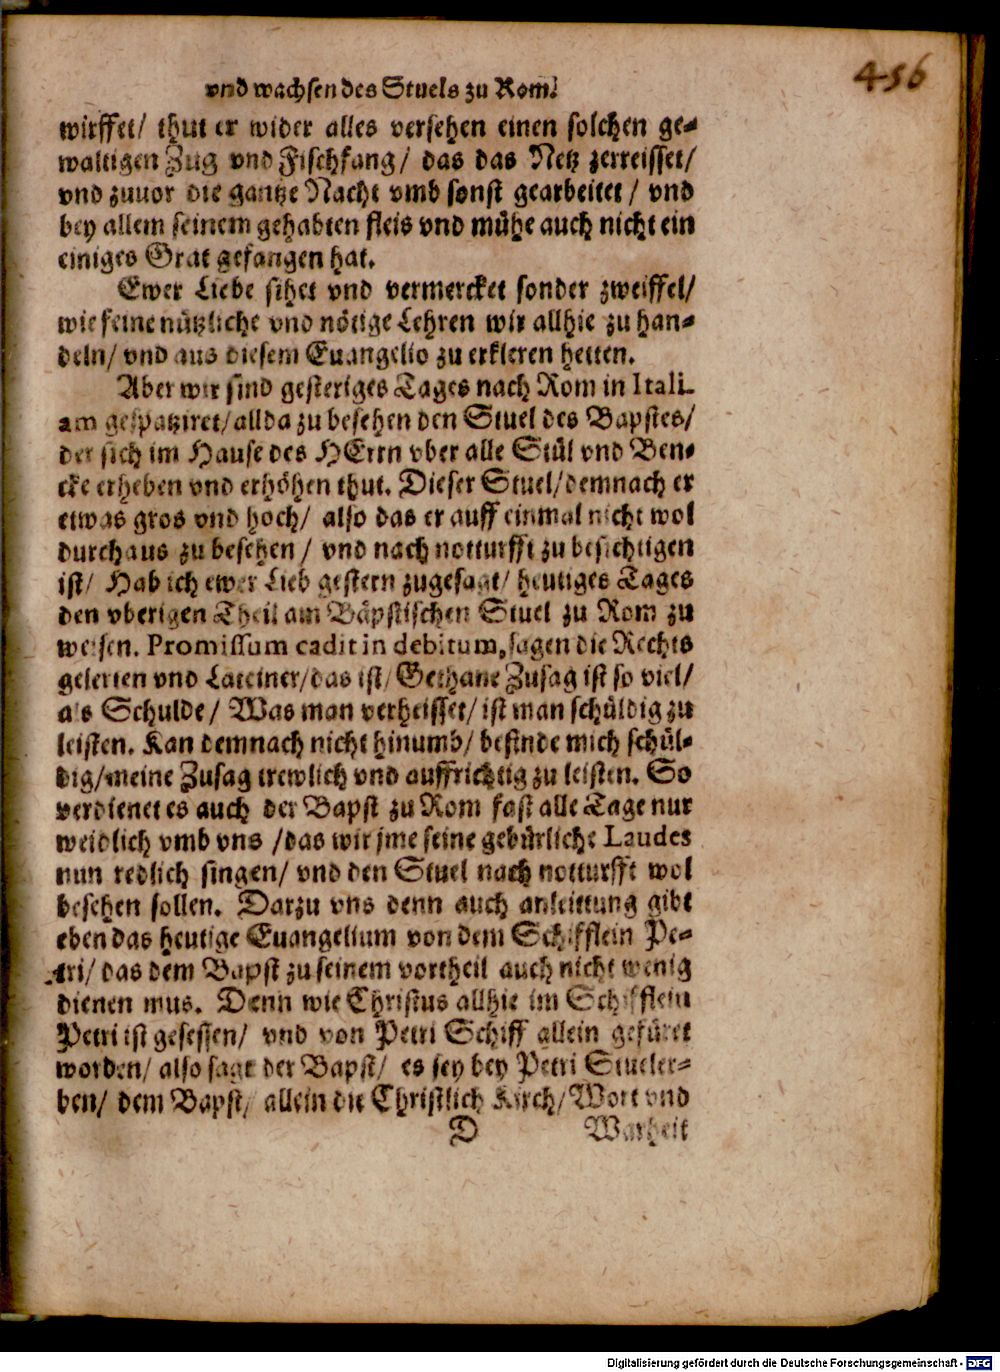 456
vnd wachsen des Stuels zu Rom.
wirffet/ thut er wider alles versehen einen solchen ge-
waltigen Zug vnd Fischfang/ das das Netz zerreisset/
vnd zuuor die gantze Nacht vmb sonst gearbeitet/ vnd
bey allem seinem gehabten fleis vnd mühe auch nicht ein
einiges Grat gefangen hat.
Ewer Liebe sihet vnd vermercket sonder zweiffel/
wie feine nützliche vnd nötige Lehren wir allhie zu han-
deln/ vnd aus diesem Euangelio zu erkleren hetten.
Aber wir sind gesteriges Tages nach Rom in Itali-
am gespatziret/ allda zu besehen den Stuel des Bapstes/
der sich im Hause des HErrn vber alle Stül vnd Ben-
cke erheben vnd erhöhen thut. Dieser Stuel/ demnach er
etwas gros vnd hoch/ also das er auff einmal nicht wol
durchaus zu besehen/ vnd nach notturfft zu besichtigen
ist/ Hab ich ewer Lieb gestern zugesagt/ heutiges Tages
den vberigen Theil am Bäpstischen Stuel zu Rom zu
weisen. Promissum cadit in debitum, sagen die Rechts
gelerten vnd Lateiner/ das ist/ Gethane Zusag ist so viel/
als Schulde/ Was man verheisset/ ist man schüldig zu
leisten. Kan demnach nicht hinumb/ befinde mich schül-
dig/ meine Zusag trewlich vnd auffrichtig zu leisten. So
verdienet es auch der Bapst zu Rom fast alle Tage nur
weidlich vmb vns/ das wir jme seine gebürliche Laudes
nun redlich singen/ vnd den Stuel nach notturfft wol
besehen sollen. Darzu vns denn auch anleittung gibt
eben das heutige Euangelium von dem Schifflein Pe-
tri/ das dem Bapst zu seinem vortheil auch nicht wenig
dienen mus. Denn wie Christus allhie im Schifflein
Petri ist gesessen/ vnd von Petri Schiff allein gefüret
worden/ also sagt der Bapst/ es sey bey Petri Stueler-
ben/ dem Bapst/ allein die Christlich Kirch/ Wort vnd
D Warheit
Digitalisierung gefördert durch die Deutsche Forschungsgemeinschaft - DFG